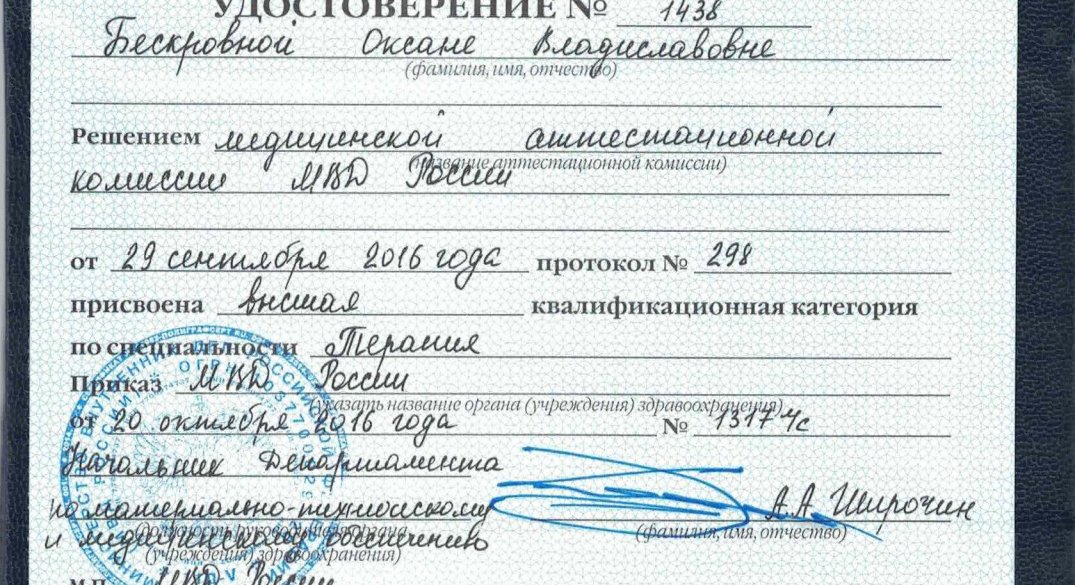 УДОСТОВЕРЕНИЕ № 1438
Бескровной Оксане Владиславовне
(фамилия, имя, отчество)
Решением медицинской аттестационной
(название аттестационной комиссии)
комиссии МВД России
от 29 сентября 2016 года протокол № 298
присвоена высшая квалификационная категория
по специальности Терапия
Приказ МВД России
(указать название органа (учреждения) здравоохранения)
от 20 октября 2016 года № 1317 л/с
Начальник Департамента
по материально-техническому А.А. Широчин
(должность руководителя органа (фамилия, имя, отчество)
и медицинскому обеспечению
(учреждения) здравоохранения)
М.П. МВД России